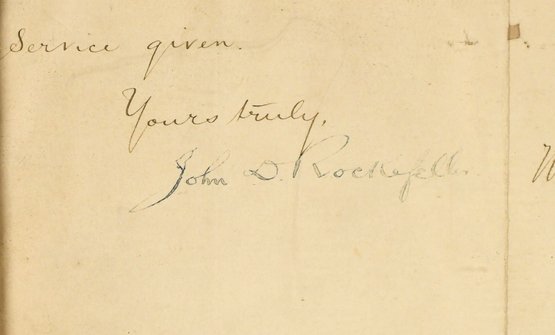 Service given.
Yours truly,
John D. Rockefell